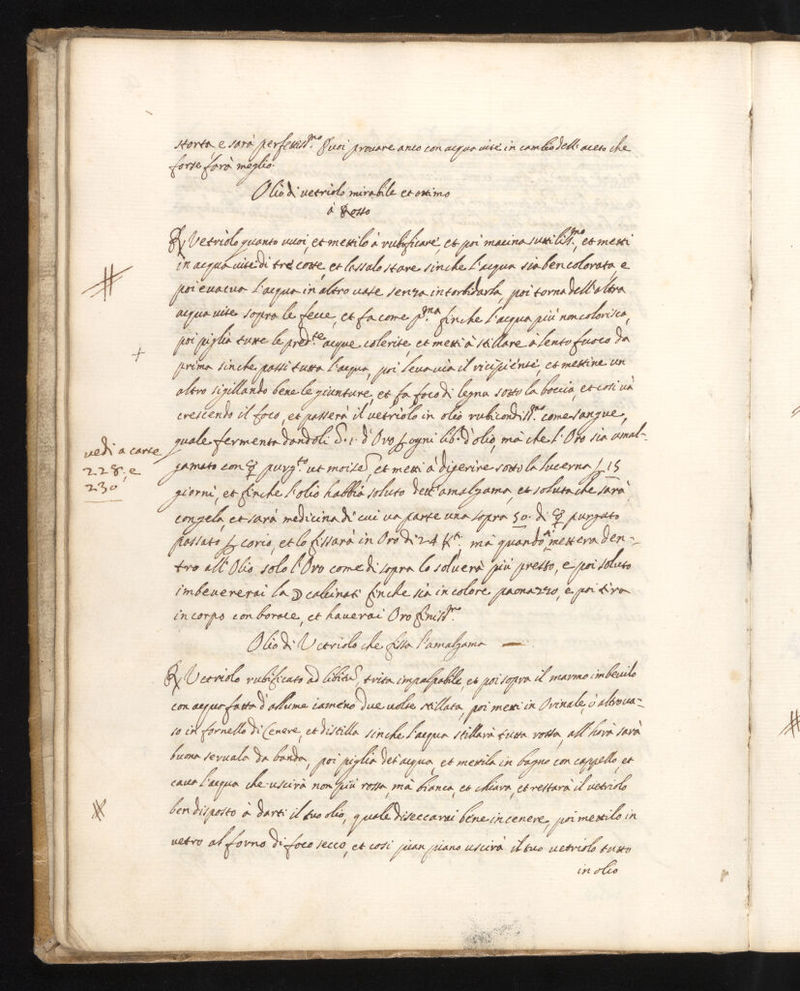 storta, e sarà perfettiss.mo Puoi provare anco con acqua vite in cambio dell'aceto che
forse farà meglio.
Olio di vetriolo mirabile et ottimo
à Rosso
℞ Vetriolo quanto vuoi, et mettilo à rubificare et poi macina suttiliss.mo, et metti
in acqua vite di tre cotte, et lassalo stare sinche l'acqua sia ben colorata, e
poi evacua l'acqua in altro vase senza intorbidarla, poi torna dell'altra
acqua vite sopra le fecce, et fa come p.ma finche l'acqua più non colorisca,
poi piglia tutte le pred.te acque colorite, et metti à stillare à lento fuoco da
prima sinche passi tutta l'acqua, poi leva via il ricipiente, et mettine un
altro sigillando bene le giunture, et fa foco di legna sotto la boccia, et così và
crescendo il foco, et passerà il vetriolo in olio rubicondiss.mo come sangue,
quale fermenta dandoli 1. d'Oro ogni lib. d'olio, mà che l'Oro sia amal-
gamato con ☿ purg.to ut moise, et metti à digerire sotto la lucerna 15
giorni, et finche l'olio habbia soluto dett'amalgama, et soluta che sarà
congela, et sarà medicina di cui va parte una sopra 50. di ☿ purgato
passato corio, et lo fissarà in Oro di 24 K.ti mà quando mettera den-
tro all'Olio solo l'Oro come di sopra lo solverà più presto, e poi soluto
imbevererai la ☽ calcinati finche sia in colore paonazzo, e poi tira
in corpo con borace, et haverai Oro finiss.mo
Olio di Vetriolo che fissa l'amalgama
℞ Vetriolo rubificato ad libit., trita impalpabile, et poi sopra il marmo imbevilo
con acqua fatta d'allume iameno due volte stillata, poi metti in Orinale, ò altro va-
so in fornello di Cenere, et distilla sinche l'acqua stillarà tutta rossa, all'hora sarà
buona servala da banda, poi piglia det'acqua, et metila in bagno con cappello, et
cava l'acqua che uscirà non più rossa, mà bianca, et chiara, et restarà il vetriolo
ben disposto à darti il tuo olio, quale diseccarai bene in cenere, poi mettilo in
vetro al forno di foco secco, et cosi pian piano uscirà il tuo vetriolo tutto
in olio
vedi a carte
228, e
230